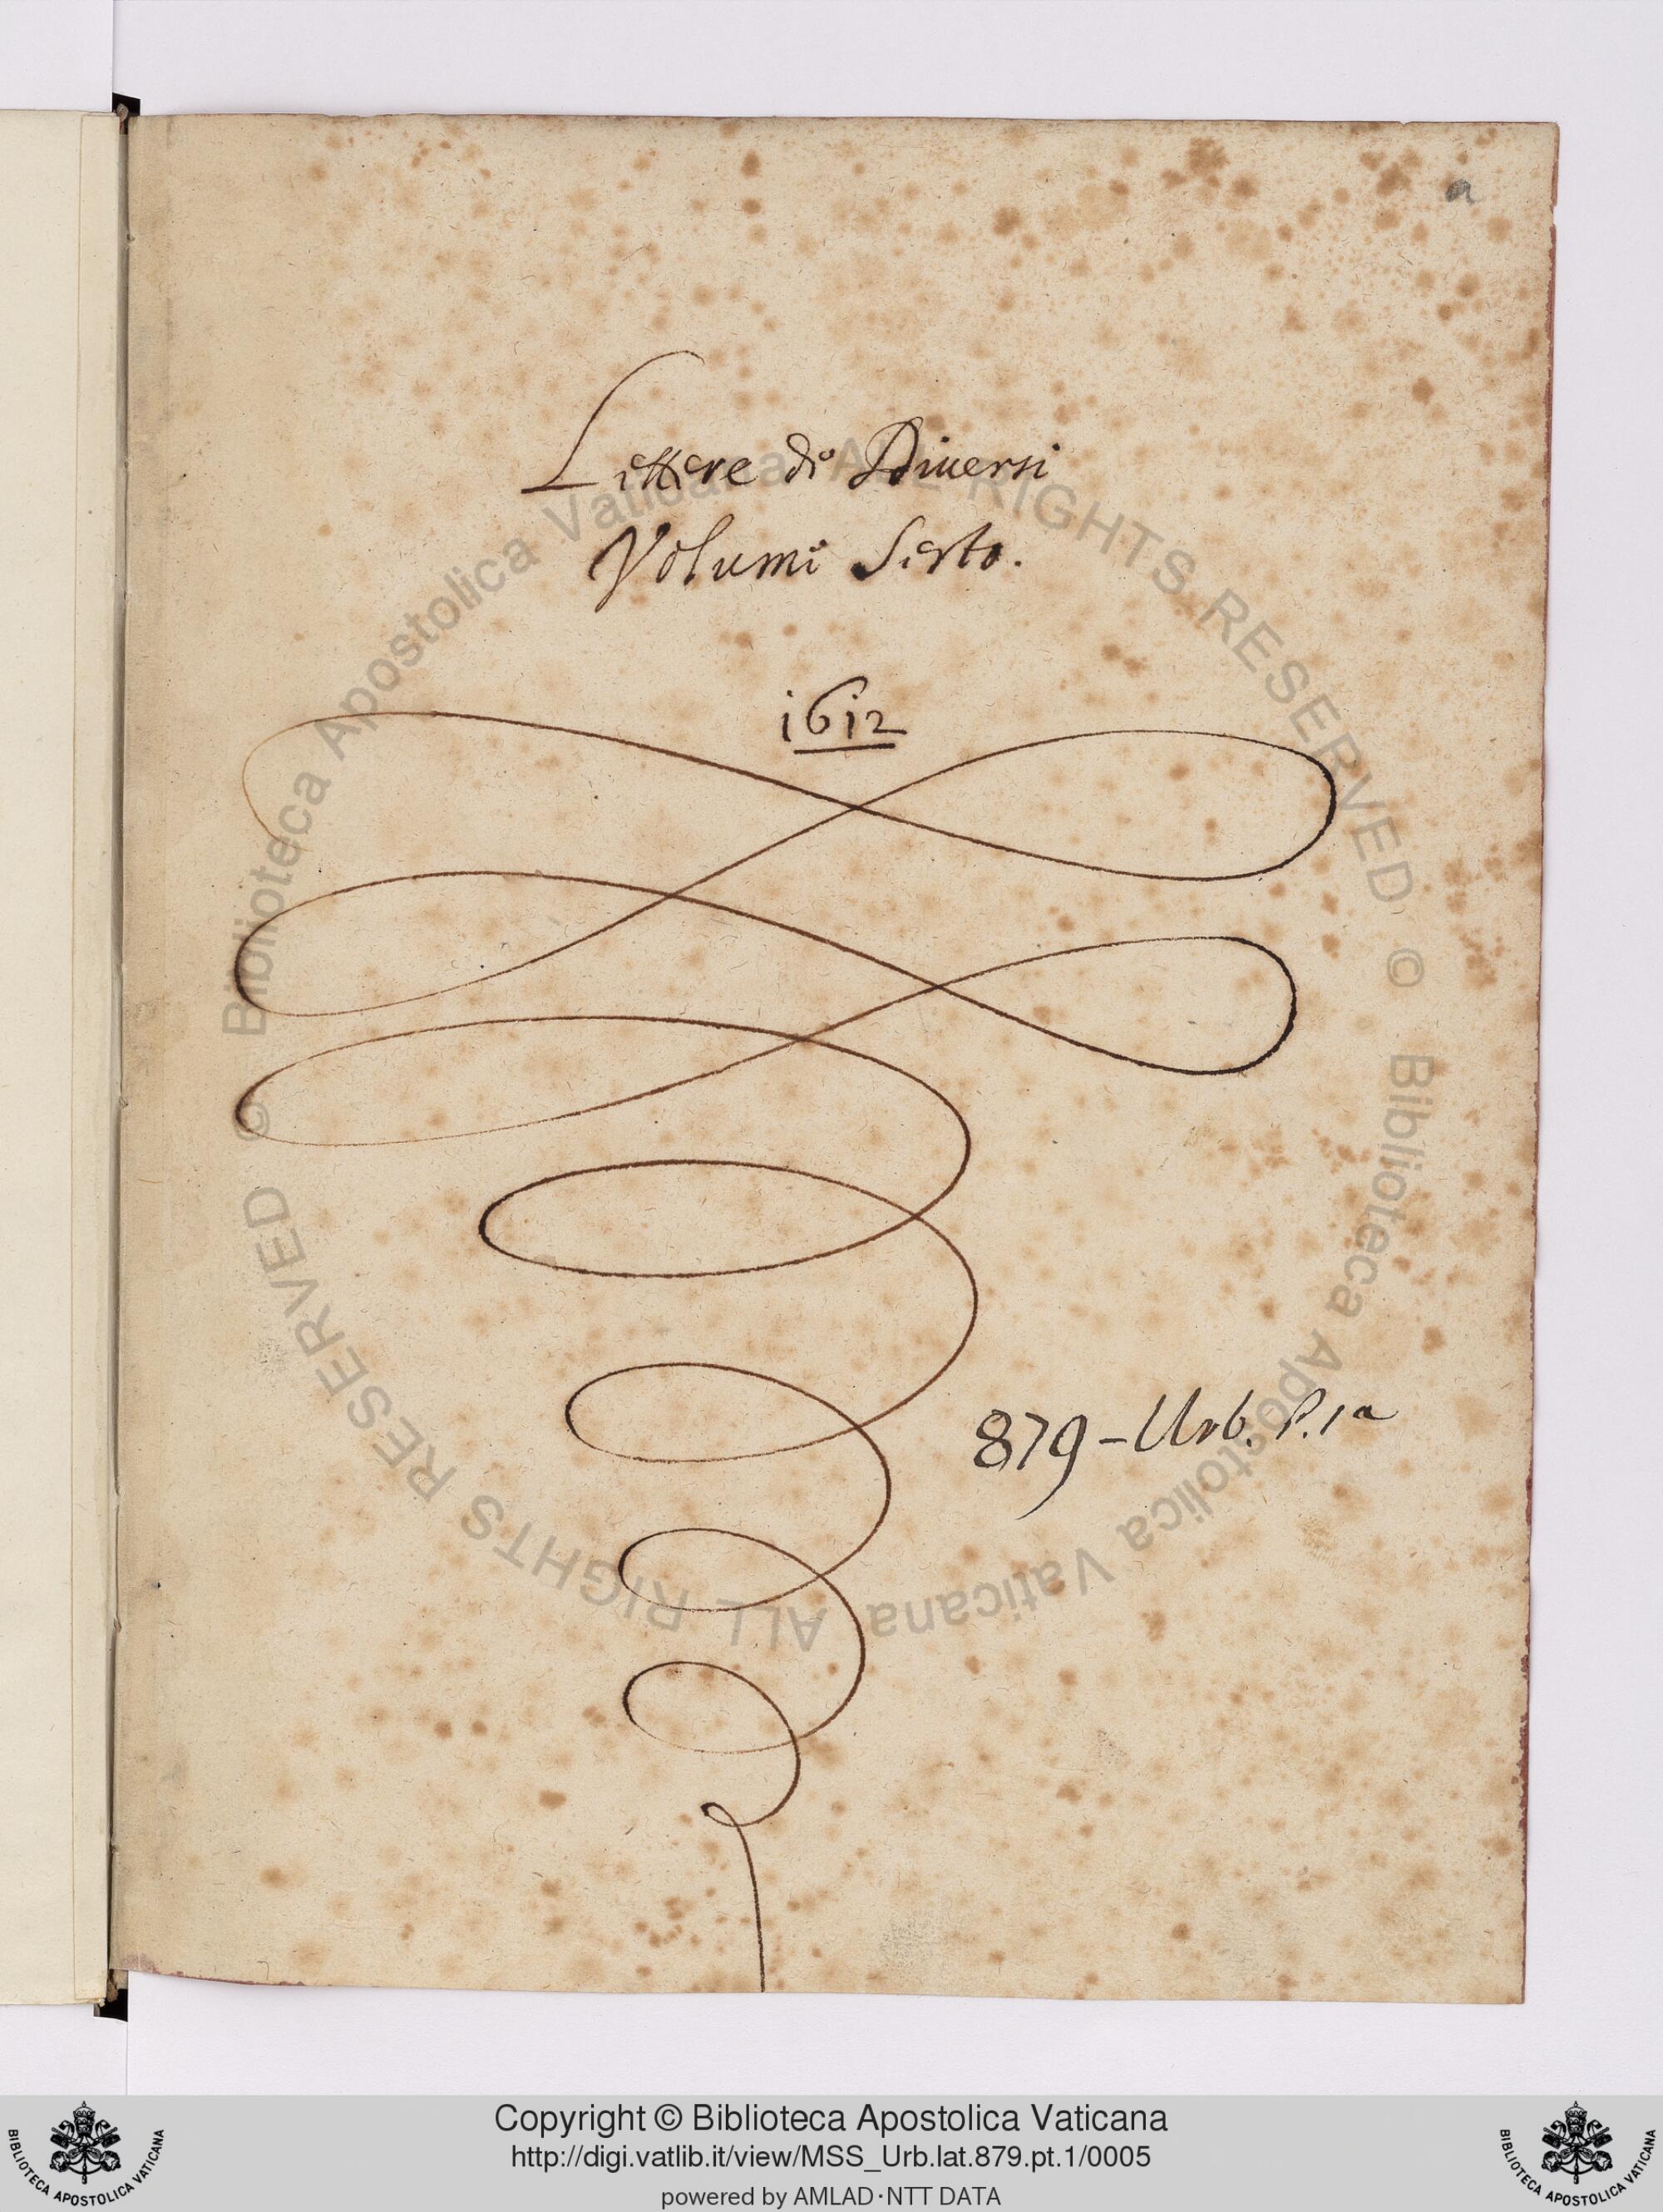 a
Lettere di Diuersi
Volume Sesto.
1612
879-Urb. P.1a
© Biblioteca Apostolica Vaticana ALL RIGHTS RESERVED © Biblioteca Apostolica Vaticana ALL RIGHTS RESERVED
Copyright © Biblioteca Apostolica Vaticana
http://digi.vatlib.it/view/MSS_Urb.lat.879.pt.1/0005
powered by AMLAD·NTT DATA
BIBLIOTECA APOSTOLICA VATICANA
BIBLIOTECA APOSTOLICA VATICANA